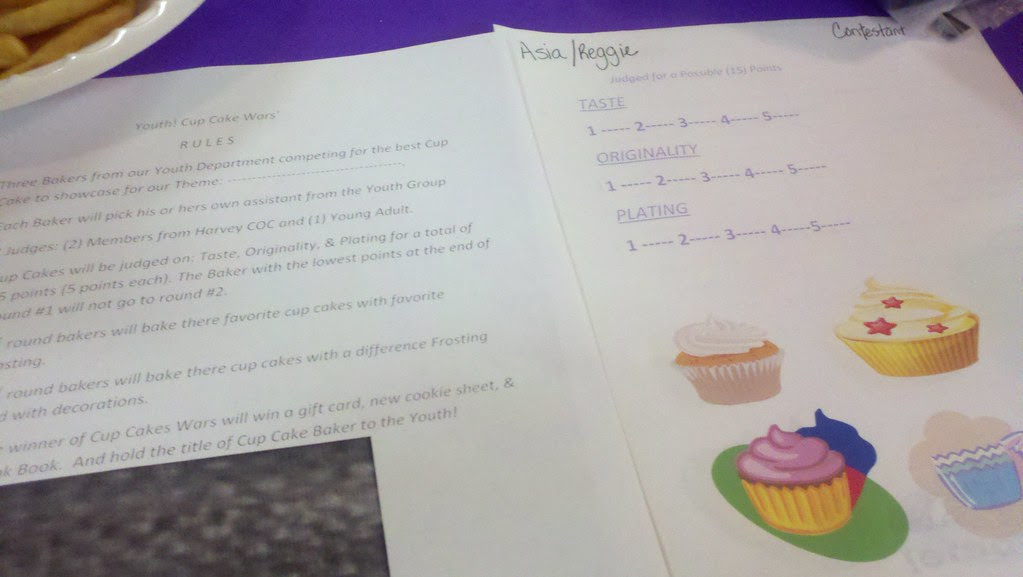 Youth! Cup Cake Wars'
RULES
Three Bakers from our Youth Department competing for the best Cup
Cake to showcase for our Theme: ----------------------------------.
Each Baker will pick his or hers own assistant from the Youth Group
Judges: (2) Members from Harvey COC and (1) Young Adult.
up Cakes will be judged on: Taste, Originality, & Plating for a total of
5 points (5 points each). The Baker with the lowest points at the end of
ound #1 will not go to round #2.
round bakers will bake there favorite cup cakes with favorite
osting.
round bakers will bake there cup cakes with a difference Frosting
d with decorations.
winner of Cup Cakes Wars will win a gift card, new cookie sheet, &
ok Book. And hold the title of Cup Cake Baker to the Youth!
Asia/Reggie
Contestant
Judged for a Possible (15) Points
TASTE
1 ----- 2----- 3----- 4----- 5-----
ORIGINALITY
1 ----- 2----- 3----- 4----- 5-----
PLATING
1 ----- 2----- 3----- 4-----5-----